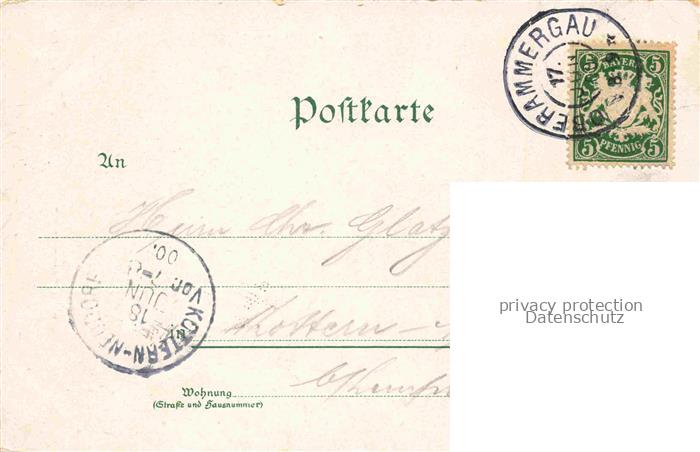 BERAMMERGAU
17.
5 BAYERN 5
5 PFENNIG 5
Postkarte
An
Herrn Chr. Glatz
KOTTERN-NEUDORF
18
JUN
7-8
Vor.
00.
Kottern-
Wohnung
(Straße und Hausnummer)
privacy protection
Datenschutz